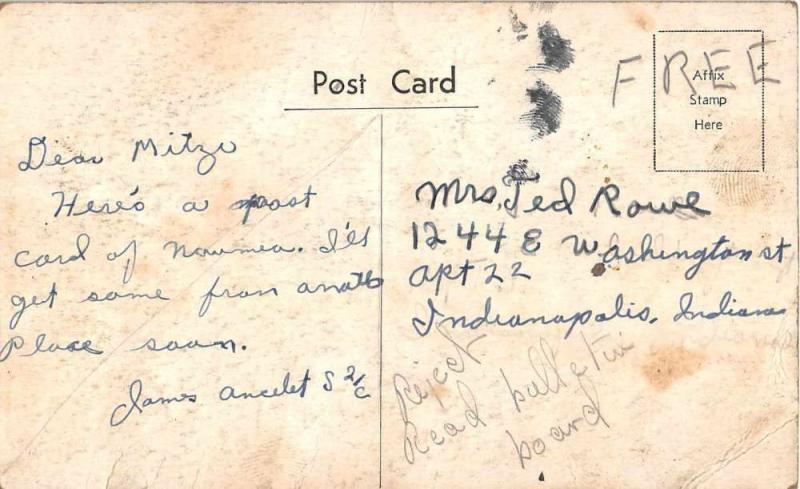 Post Card
FREE
Affix
Stamp
Here
Dear Mitzi
Here's a post
card of Noumea. I'll
get some from another
Place soon.
James Ancelet S 2/c
Mrs. Ted Rowe
1244 E Washington st
apt 22
Indianapolis, Indiana
Reject
Read bulletin
board